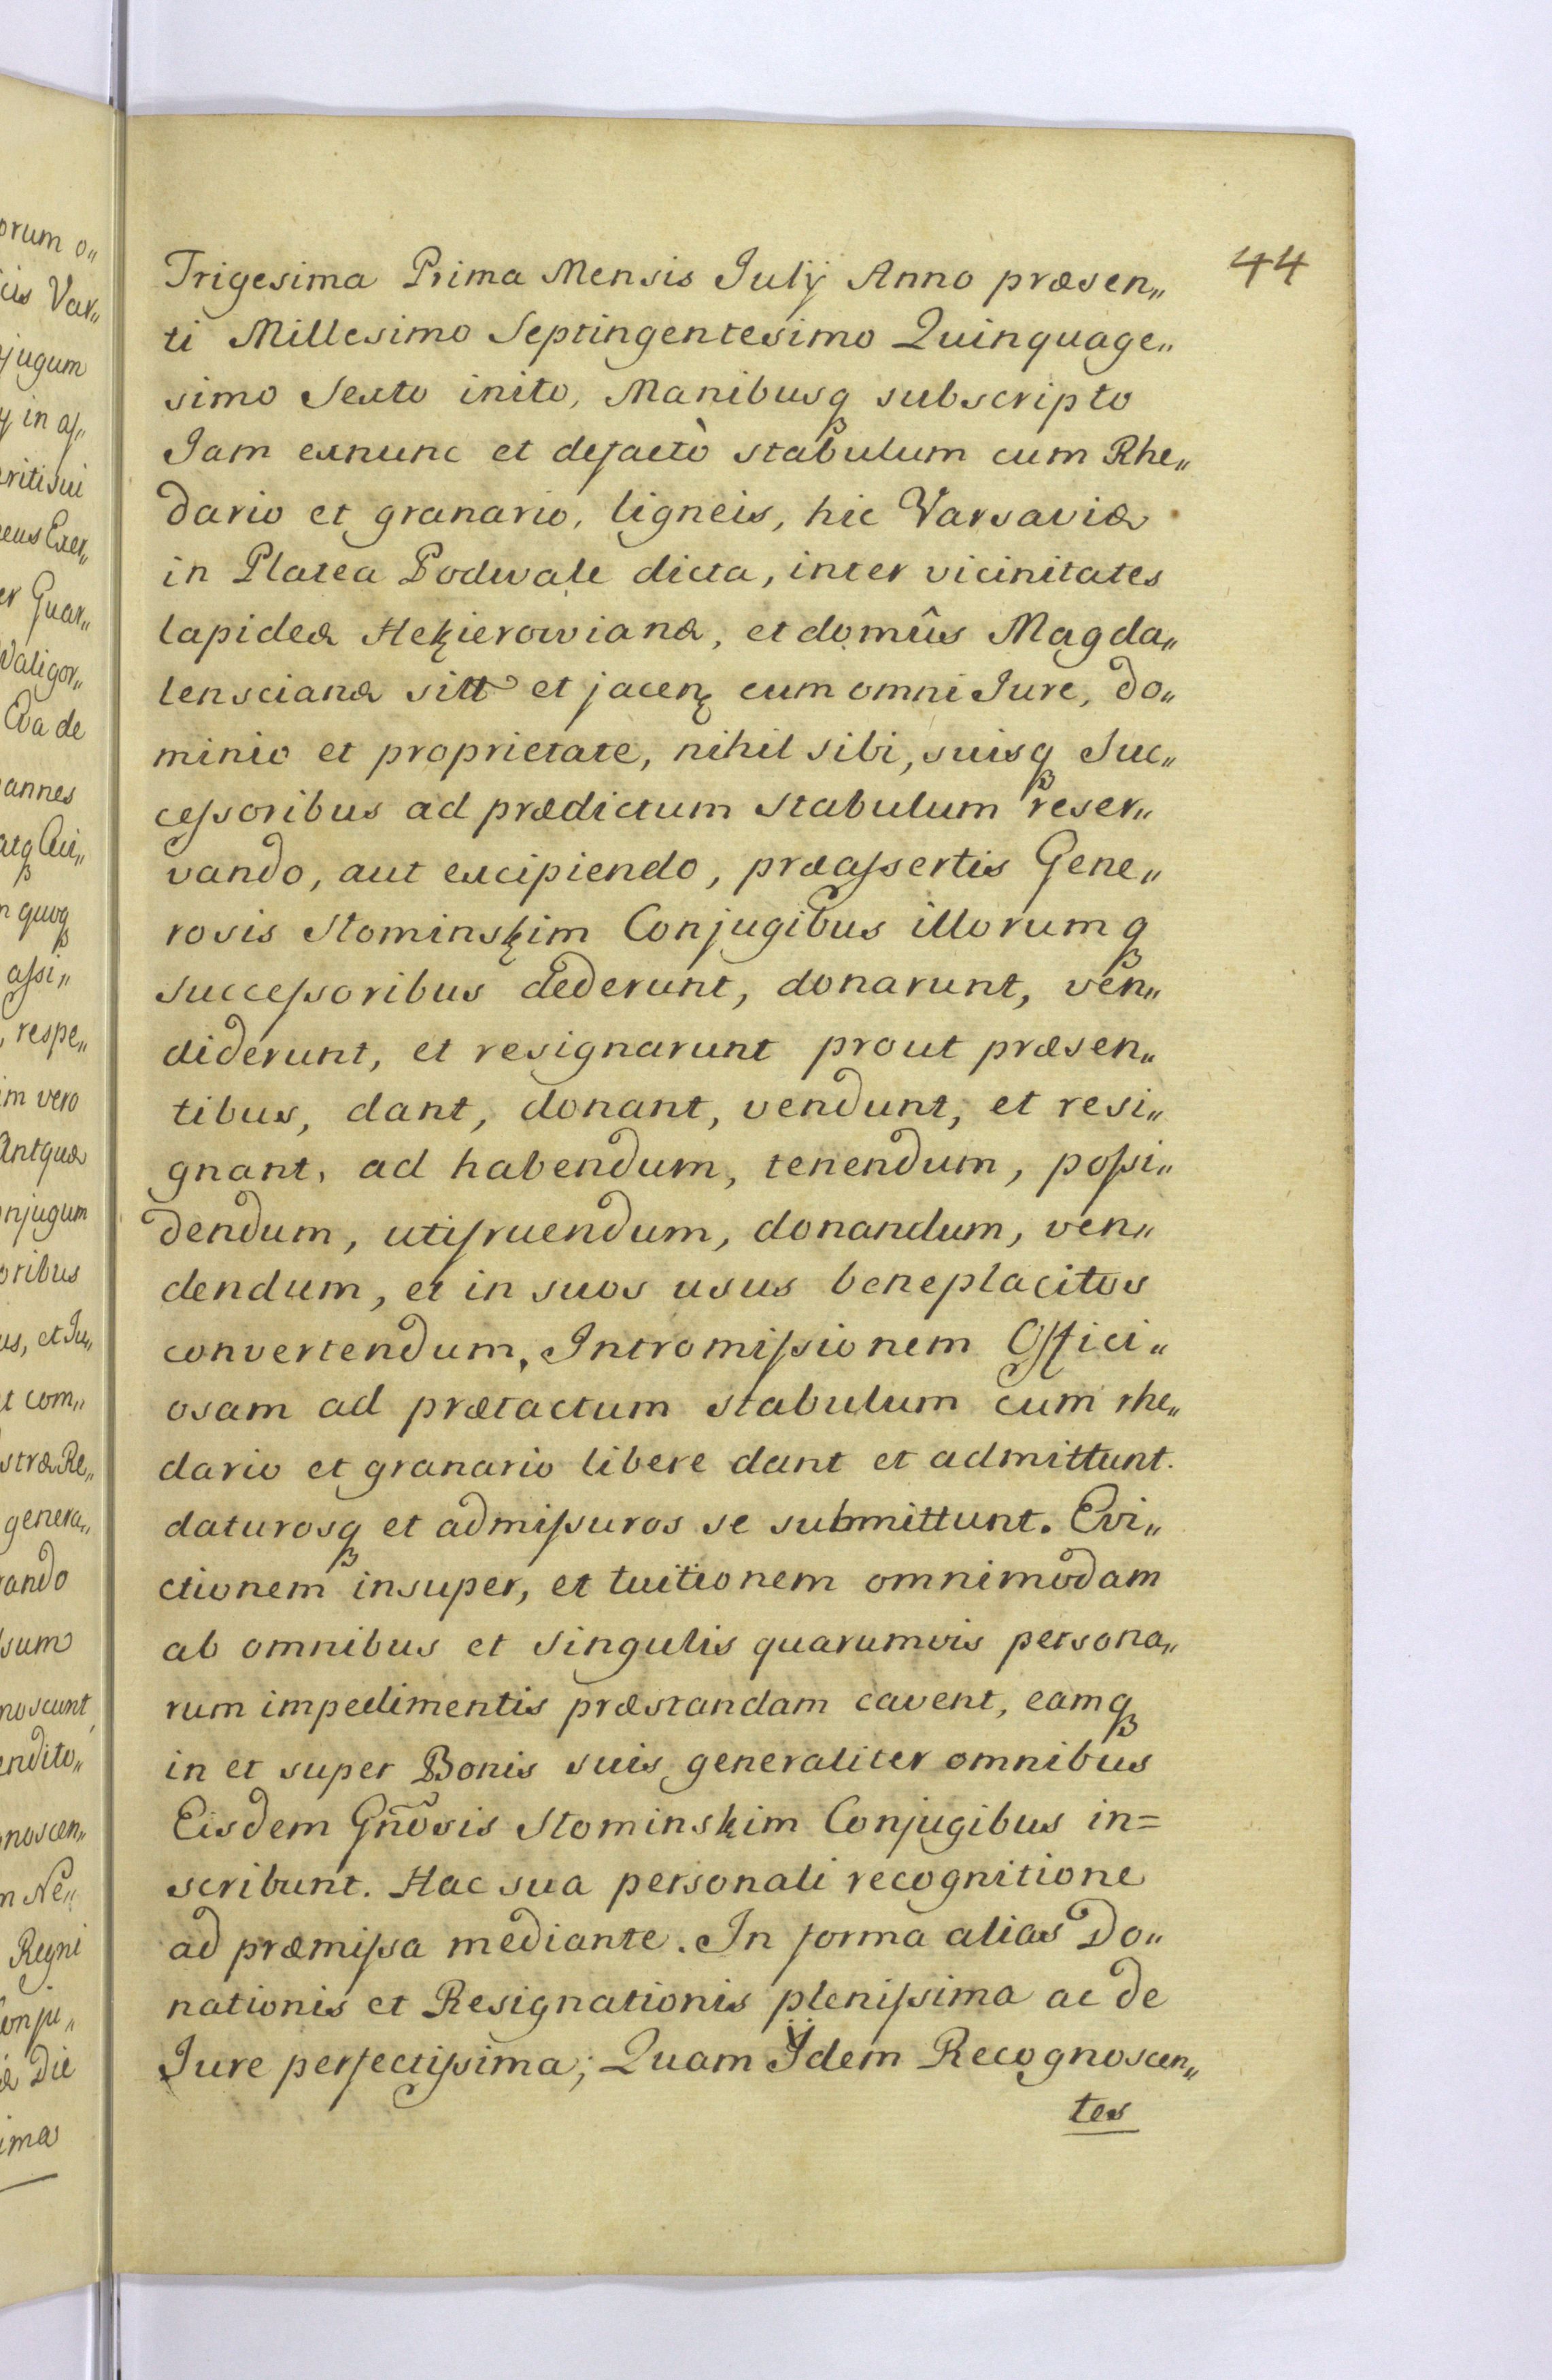 44
Trigesima Prima Mensis Julÿ Anno præsen„
ti Millesimo Septingentesimo Quinquage„
simo Sexto inito, Manibusq subscripto
Jam exnunc et defactò stabulum cum Rhe„
dario et granario, ligneis, hic Varsaviæ
in Platea Podwale dicta, inter vicinitates
lapideæ Hekierowianæ, et domûs Magda„
lenscianæ sitt et jacen cum omni Jure, do„
minio et proprietate, nihil sibi, suisq Suc„
cessoribus ad prædictum stabulum reser„
vando, aut excipiendo, præassertis Gene„
rosis Słominskim Conjugibus illorumq
successoribus dederunt, donarunt, ven„
diderunt, et resignarunt prout præsen„
tibus, dant, donant, vendunt, et resi„
gnant, ad habendum, tenendum, possi„
dendum, utifruendum, donandum, ven„
dendum, et in suos usus beneplacitos
convertendum, Intromissionem Offici„
osam ad prætactum stabulum cum rhe„
dario et granario libere dant et admittunt.
daturosq et admissuros se submittunt. Evi„
ctionem insuper, et tuitionem omnimodam
ab omnibus et singulis quarumvis persona„
rum impedimentis præstandam cavent, eamq
in et super Bonis suis generaliter omnibus
Eisdem Gñosis Słominskim Conjugibus in=
scribunt. Hac sua personali recognitione
ad præmissa mediante. In forma alias Do„
nationis et Resignationis plenissima ac de
Jure perfectissima; Quam Ijdem Recognoscen„
tes
orum o„
Var„
jugum
in as„
ritisui
eus Exer„
er Guar„
Waligor„
Eva de
annes
atq Cui„
n quoq
assi„
, respe„
im vero
Antquæ
onjugum
oribus
us, et Ju„
et com„
stræ Re„
genera„
rando
sum
noscunt
endito„
noscen„
m Ne„
Regni
Conju„
Die
ima